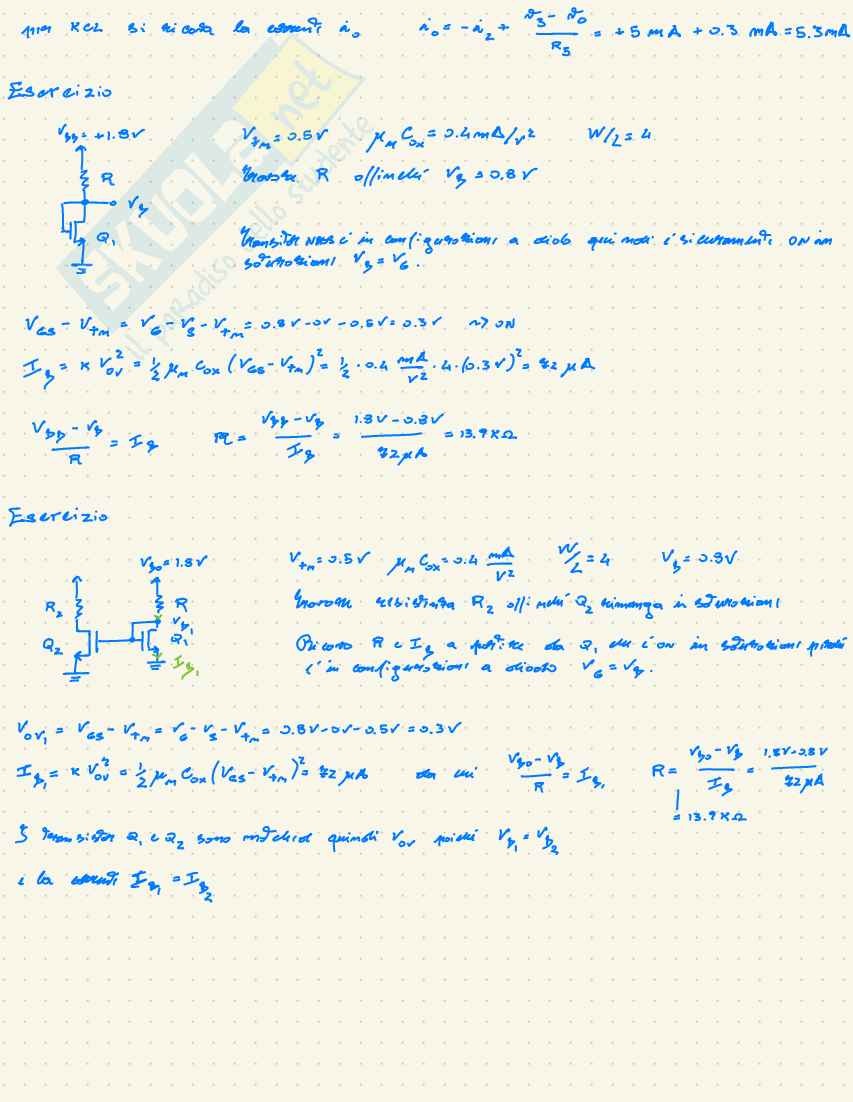 per KCL si ricava la corrente i₀   i₀ = -i₂ + (v₃ - v₀)/R₅ = +5 mA + 0.3 mA = 5.3 mA
Esercizio
V_DD = +1.8V   V_tn = 0.5V   μn Cox = 0.4 mA/V²   W/L = 4
R   trovare R affinché V_D = 0.8V
V_D
Q₁   transistor NMOS è in configurazione a diodo quindi è sicuramente ON in
saturazione V_D = V_G.
V_GS - V_tn = V_G - V_S - V_tn = 0.8V - 0V - 0.5V = 0.3V ~> ON
I_D = K V_ov² = 1/2 μn Cox (V_GS - V_tn)² = 1/2 · 0.4 mA/V² · 4 · (0.3V)² = 72 μA
(V_DD - V_D)/R = I_D   R = (V_DD - V_D)/I_D = (1.8V - 0.8V)/72 μA = 13.9 KΩ
Esercizio
V_DD = 1.8V   V_tn = 0.5V   μn Cox = 0.4 mA/V²   W/L = 4   V_D = 0.8V
R₂   R   trovare resistenza R₂ affinché Q₂ rimanga in saturazione
V_D₁
Q₂   Q₁   Ricavo R e I_D a partire da Q₁ che è ON in saturazione poiché
I_D₁   è in configurazione a diodo V_G = V_D.
V_ov₁ = V_GS - V_tn = V_G - V_S - V_tn = 0.8V - 0V - 0.5V = 0.3V
I_D₁ = K V_ov² = 1/2 μn Cox (V_GS - V_tn)² = 72 μA   da cui   (V_DD - V_D)/R = I_D₁   R = (V_DD - V_D)/I_D = (1.8V - 0.8V)/72 μA
= 13.9 KΩ
I transistor Q₁ e Q₂ sono matched quindi V_ov poiché V_D₁ = V_D₂
e la corrente I_D₁ = I_D₂
SKUOLA.net
il paradiso dello studente